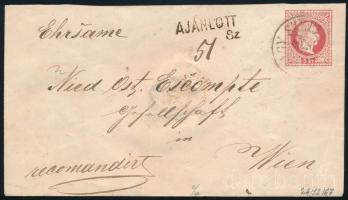 Ehrsame
AJÁNLOTT
Sz
51
Nied. Öst. Escompte
Gesellschaft
in
Wien
recomandirt
5 KR
24/12/67